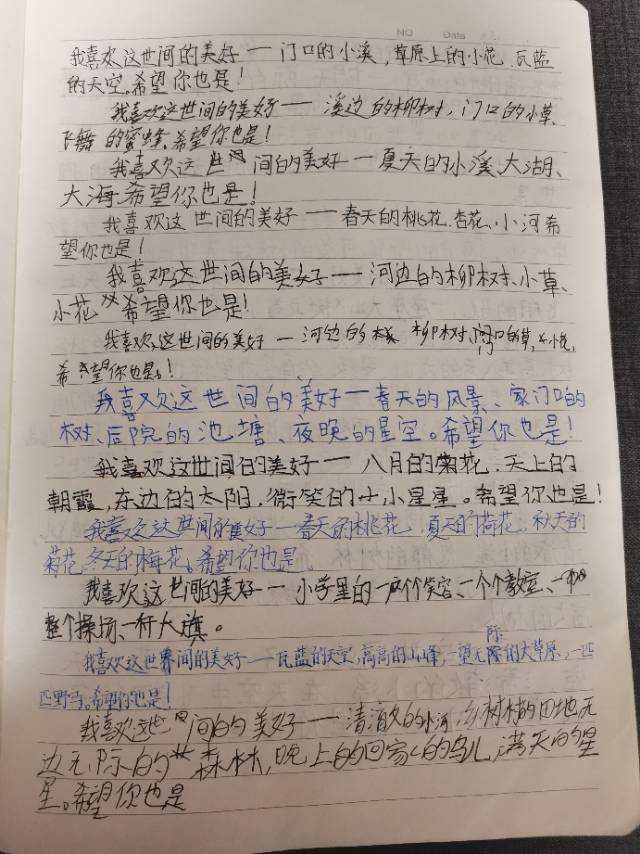 我喜欢这世间的美好一门口的小溪，草原上的小花、瓦蓝
的天空。希望你也是！
我喜欢这世间的美好——溪边的柳树，门口的小草、
飞舞的蜜蜂。希望你也是！
我喜欢这世间的美好一夏天的小溪、大湖、
大海希望你也是！
我喜欢这世间的美好——春天的桃花、杏花、小河希
望你也是！
我喜欢这世间的美好——河边的柳树、小草、
小花希望你也是！
我喜欢这世间的美好一河边的柳树、门口的草、小花，
希望你也是！
我喜欢这世间的美好一春天的风景、家门口的
树、后院的池塘、夜晚的星空。希望你也是！
我喜欢这世间的美好——八月的菊花，天上的
朝霞，东边的太阳，微笑的小星星。希望你也是！
我喜欢这世间的美好一春天的桃花，夏天的荷花，秋天的
菊花，冬天的梅花。希望你也是
我喜欢这世间的美好一小学里的一个个笑容、一个个教室、
整个操场、一杆大旗。
我喜欢这世界间的美好——瓦蓝的天空，高高的山峰，一望无际的大草原，一匹
匹野马。希望你也是！
我喜欢这世间的美好——清澈的小河，乡村的田地，无
边无际的森林，晚上的回家的鸟儿，满天的星
星。希望你也是